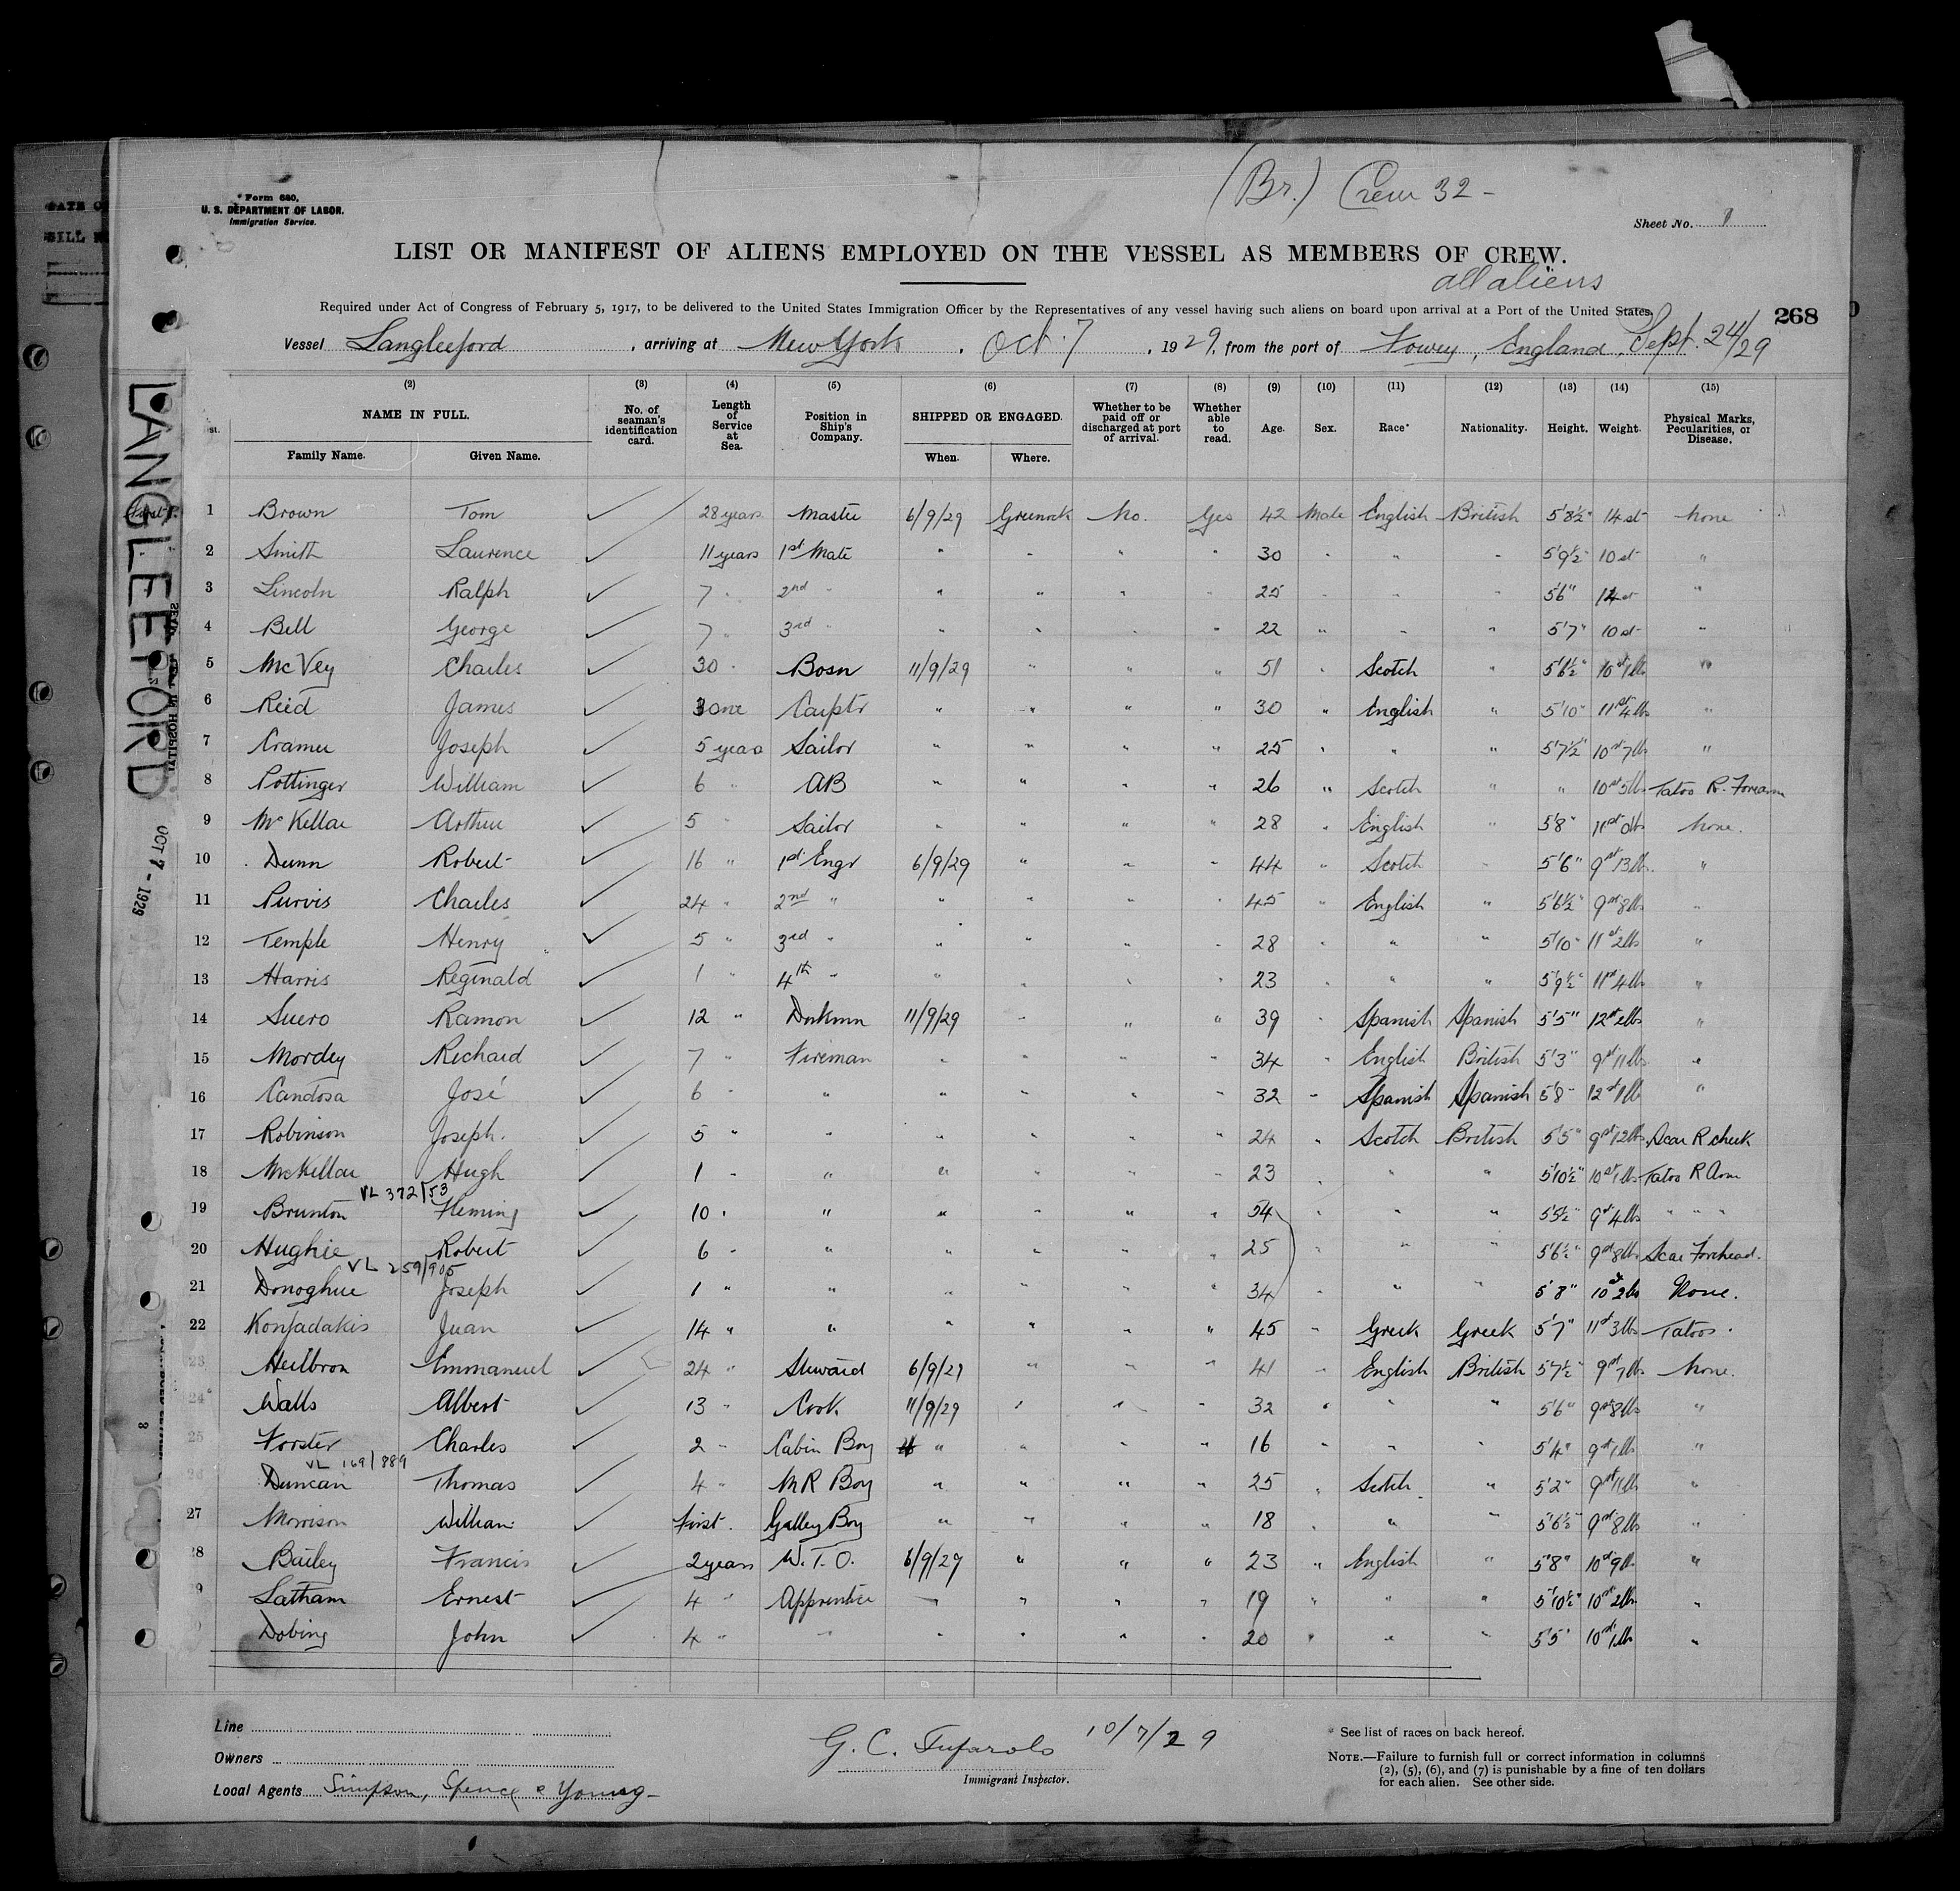 Form 680,
U. S. DEPARTMENT OF LABOR.
Immigration Service.
(Br.) Crew 32 -
Sheet No. 1
LIST OR MANIFEST OF ALIENS EMPLOYED ON THE VESSEL AS MEMBERS OF CREW.
all aliens
Required under Act of Congress of February 5, 1917, to be delivered to the United States Immigration Officer by the Representatives of any vessel having such aliens on board upon arrival at a Port of the United States.
268
Vessel Langleeford, arriving at New York, Oct. 7, 1929, from the port of Fowey, England, Sept. 24/29
LANGLEEFORD
OCT 7 - 1929
(2) (3) (4) (5) (6) (7) (8) (9) (10) (11) (12) (13) (14) (15)
NAME IN FULL. Family Name. Given Name. No. of seaman's identification card. Length of Service at Sea. Position in Ship's Company. SHIPPED OR ENGAGED. When. Where. Whether to be paid off or discharged at port of arrival. Whether able to read. Age. Sex. Race* Nationality. Height. Weight. Physical Marks, Pecularities, or Disease.
1 Brown Tom ✓ 28 years Master 6/9/29 Greenock No. Yes 42 Male English British 5'8½" 14 st None
2 Smith Laurence ✓ 11 years 1st Mate " " " " 30 " " " 5'9½" 10 st "
3 Lincoln Ralph ✓ 7 " 2nd " " " " " 25 " " " 5'6" 12 st "
4 Bell George ✓ 7 " 3rd " " " " " 22 " " " 5'7" 10 st "
5 McVey Charles ✓ 30 " Bosn 11/9/29 " " " 51 " Scotch " 5'6½" 10 st 1 lb "
6 Reid James ✓ Carptr " " " " 30 " English " 5'10" 11 st 4 lbs "
7 Cramer Joseph ✓ 5 years Sailor " " " " 25 " " " 5'7½" 10 st 7 lb "
8 Pottinger William ✓ 6 " AB " " " " 26 " Scotch " " 10 st 5 lbs Tatoo R. Forearm
9 McKellar Arthur ✓ 5 " Sailor " " " " 28 " English " 5'8" 11 st 0 lb None.
10 Dunn Robert ✓ 16 " 1st Engr 6/9/29 " " " 44 " Scotch " 5'6" 9 st 13 lb "
11 Purvis Charles ✓ 24 " 2nd " " " " " 45 " English " 5'6½" 9 st 8 lb "
12 Temple Henry ✓ 5 " 3rd " " " " " 28 " " " 5'10" 11 st 2 lbs "
13 Harris Reginald ✓ 1 " 4th " " " " " 23 " " " 5'9½" 11 st 4 lb "
14 Suero Ramon ✓ 12 " Dnkmn 11/9/29 " " " 39 " Spanish Spanish 5'5" 12 st 2 lbs "
15 Mordey Richard ✓ 7 " Fireman " " " " 34 " English British 5'3" 9 st 11 lb "
16 Candosa José ✓ 6 " " " " " " 32 " Spanish Spanish 5'8" 12 st 1 lb "
17 Robinson Joseph. ✓ 5 " " " " " " 24 " Scotch British 5'5" 9 st 12 lb Scar R cheek
18 McKellar Hugh ✓ 1 " " " " " " 23 " " " 5'10½" 10 st 1 lb Tatoo R Arm
VL 372/53
19 Brunton Fleming ✓ 10 " " " " " " 54 " " " 5'5½" 9 st 4 lbs " " "
20 Hughie Robert ✓ 6 " " " " " " 25 " " " 5'6½" 9 st 8 lb Scar Forehead.
VL 259/905
21 Donoghue Joseph ✓ 1 " " " " " " 34 " " " 5'8" 10 st 2 lbs None.
22 Konfadakis Juan ✓ 14 " " " " " " 45 " Greek Greek 5'7" 11 st 3 lb Tatoos.
23 Heilbron Emmanuel ✓ 24 " Steward 6/9/29 " " " 41 " English British 5'7½" 9 st 7 lb None.
24 Walls Albert ✓ 13 " Cook 11/9/29 " " " 32 " " " 5'6" 9 st 8 lbs "
25 Forster Charles ✓ 2 " Cabin Boy " " " " 16 " " " 5'4" 9 st 1 lb "
VL 169/889
26 Duncan Thomas ✓ 4 " M R Boy " " " " 25 " Scotch " 5'2" 9 st 11 lb "
27 Morrison William ✓ First. Galley Boy " " " " 18 " " " 5'6½" 9 st 8 lb "
28 Bailey Francis ✓ 2 years W. T. O. 6/9/29 " " " 23 " English " 5'8" 10 st 9 lb "
9 Latham Ernest ✓ 4 " Apprentice " " " " 19 " " " 5'10½" 10 st 2 lb "
Dobing John ✓ 4 " " " " " " 20 " " " 5'5" 10 st 1 lb "
Line
Owners
Local Agents Simpson, Spence & Young
G. C. 10/7/29
Immigrant Inspector.
* See list of races on back hereof.
NOTE.—Failure to furnish full or correct information in columns
(2), (5), (6), and (7) is punishable by a fine of ten dollars
for each alien. See other side.